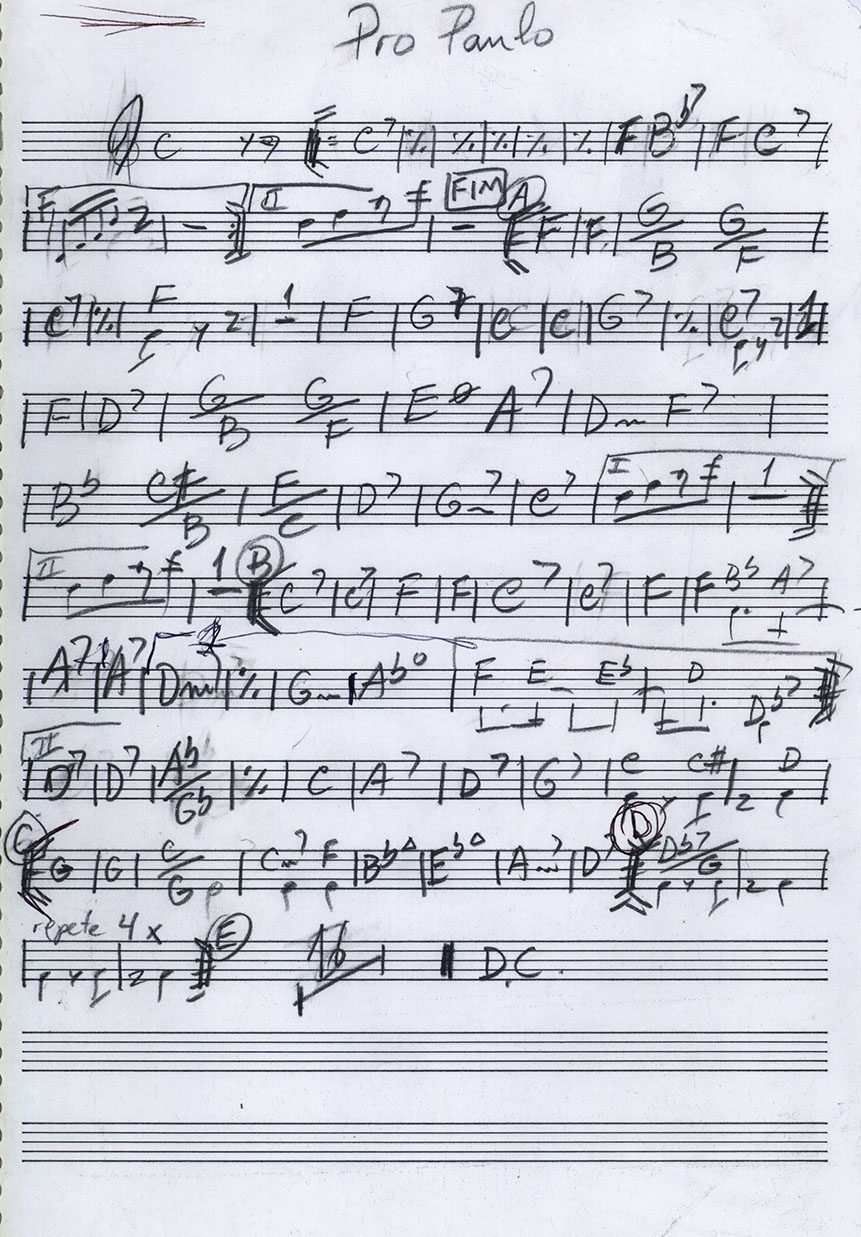 Pro Paulo
C C7 | % | % | % | % | % | F Bb7 | F C7 |
F 2 | - II | - FIM A F | F | G/B G/F |
C7 | % | F 2 | 1 | F | G7 | C | C | G7 | % | C7 2 | 1
| F | D7 | G/B G/F | EØ A7 | Dm F7 |
| Bb C#/B | F/C | D7 | Gm7 | C7 | I | 1
II | 1 B C7 | C7 | F | F | C7 | C7 | F | F Bb A7
| A7 | A7 | Dm | % | Gm | Abo | F E Eb | D Db7
II
| D7 | D7 | Ab/Gb | % | C | A7 | D7 | G7 | C C# | 2 D
C G | G | C/G | Cm7 F | BbΔ | EbΔ | Am7 | D7 D Db7/G | 2
repete 4x
| 2 E 16 D.C.